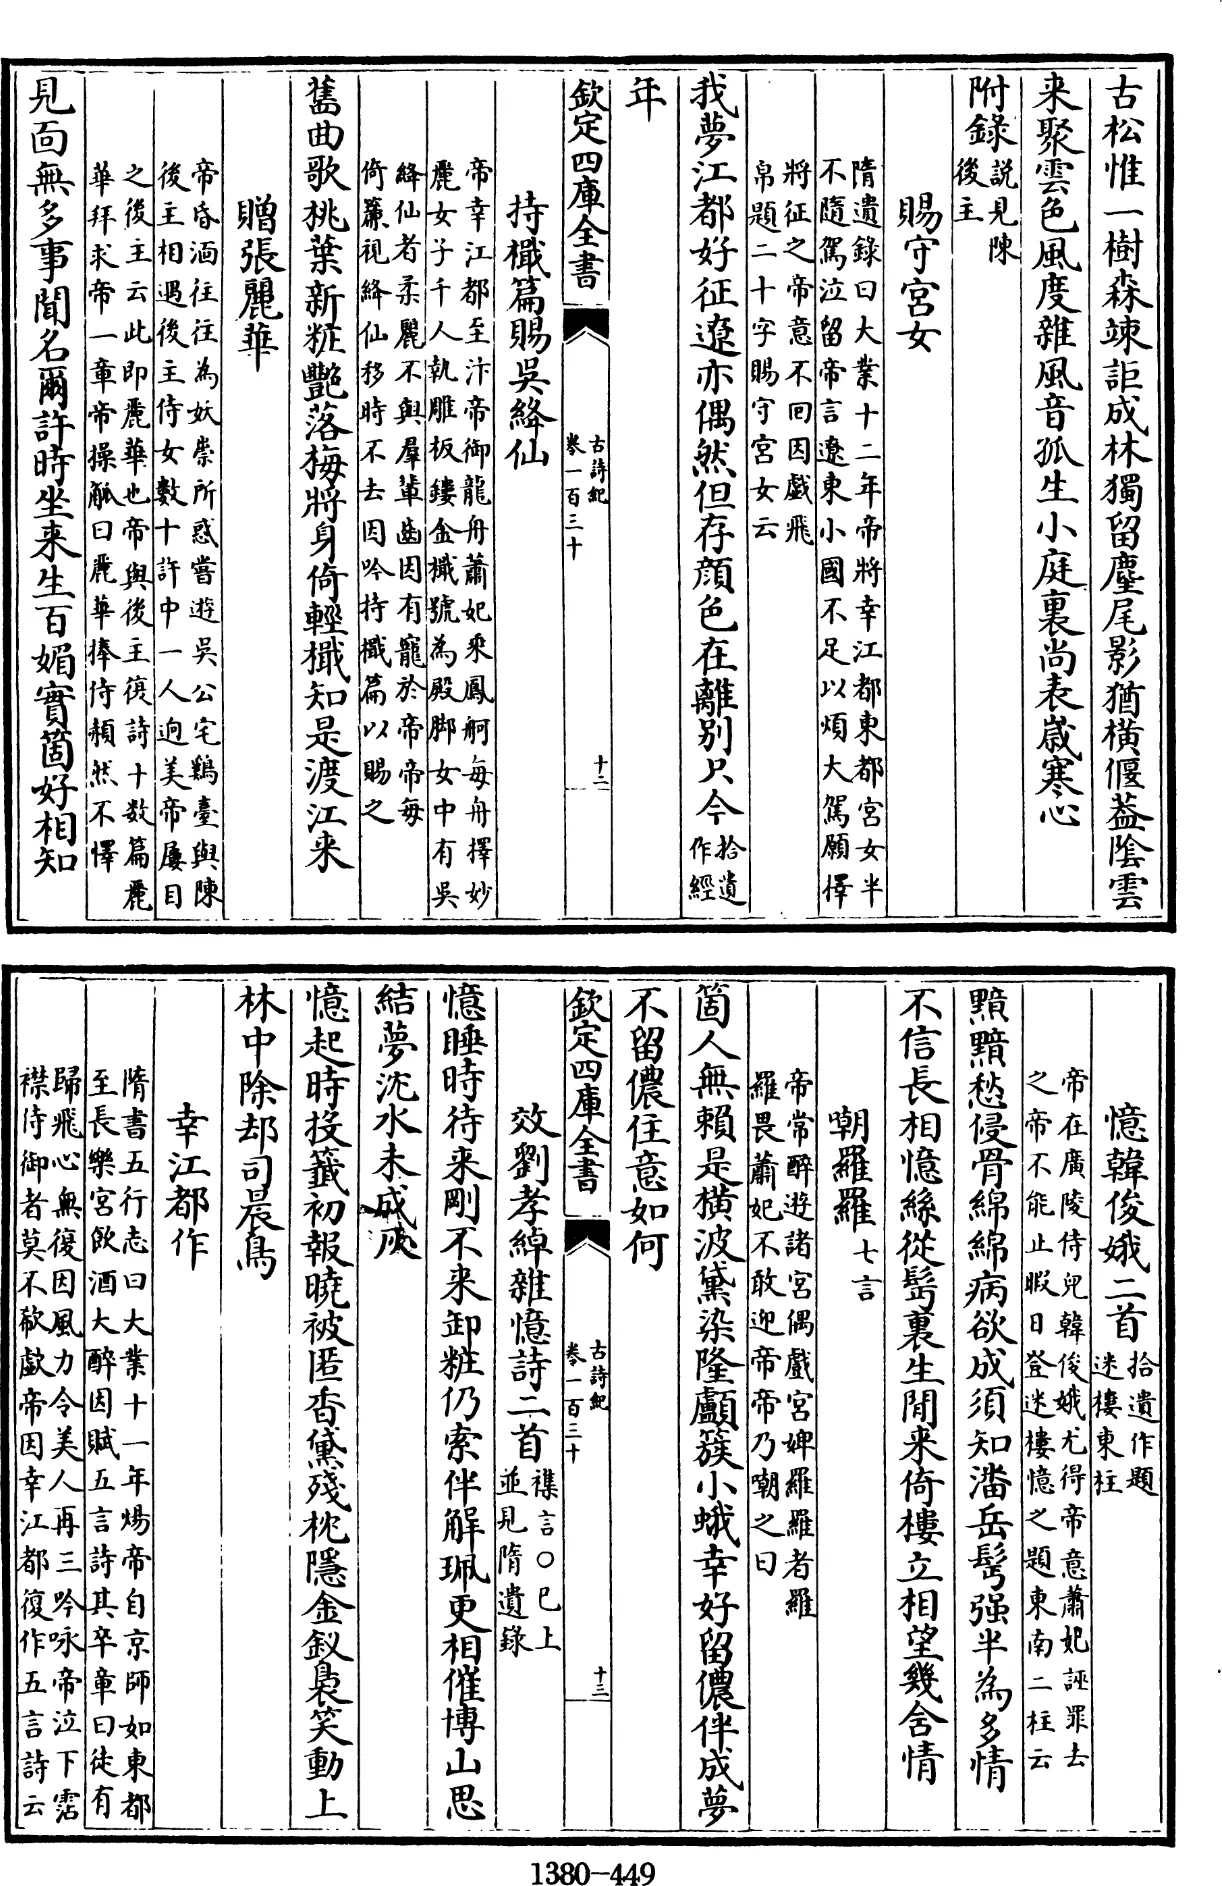 古松惟一樹森竦詎成林獨留塵尾影猶横偃葢陰雲
来聚雲色風度雜風音孤生小庭裏尚表嵗寒心
附錄說見陳後主
賜守宮女
隋遺錄曰大業十二年帝將幸江都東都宮女半
不隨駕泣留帝言遼東小國不足以煩大駕願擇
將征之帝意不回因戲飛
帛題二十字賜守宮女云
我夢江都好征遼亦偶然但存顔色在離别只今拾遺作經
年
欽定四庫全書
古詩紀
卷一百三十
十二
持檝篇賜吳絳仙
帝幸江都至汴帝御龍舟蕭妃乘鳳舸每舟擇妙
麗女子千人執雕板鏤金檝號為殿脚女中有吳
絳仙者柔麗不與羣輩齒因有寵於帝帝每
倚簾視絳仙移時不去因吟持檝篇以賜之
舊曲歌桃葉新粧艷落梅將身倚輕檝知是渡江来
贈張麗華
帝昏湎往往為妖祟所惑嘗遊吳公宅鷄臺與陳
後主相遇後主侍女數十許中一人逈美帝屢目
之後主云此即麗華也帝與後主復詩十数篇麗
華拜求帝一章帝操觚曰麗華捧侍頳然不懌
見面無多事聞名爾許時坐来生百媚實箇好相知
憶韓俊娥二首拾遺作題迷樓東柱
帝在廣陵侍兒韓俊娥尤得帝意蕭妃誣罪去
之帝不能止暇日登迷樓憶之題東南二柱云
黯黯愁侵骨綿綿病欲成須知潘岳鬂强半為多情
不信長相憶絲從鬂裏生閒来倚樓立相望幾含情
嘲羅羅七言
帝常醉遊諸宮偶戲宮婢羅羅者羅
羅畏蕭妃不敢迎帝帝乃嘲之曰
箇人無賴是横波黛染隆顱簇小蛾幸好留儂伴成夢
不留儂住意如何
欽定四庫全書
古詩紀
卷一百三十
十三
效劉孝綽雜憶詩二首襍言○已上並見隋遺錄
憶睡時待来剛不来卸粧仍索伴解珮更相催博山思
結夢沈水未成灰
憶起時投籤初報曉被匿香黛殘枕隱金釵裊笑動上
林中除却司晨鳥
幸江都作
隋書五行志曰大業十一年煬帝自京師如東都
至長樂宮飲酒大醉因賦五言詩其卒章曰徒有
歸飛心無復因風力令美人再三吟咏帝泣下霑
襟侍御者莫不欷歔帝因幸江都復作五言詩云
1380-449